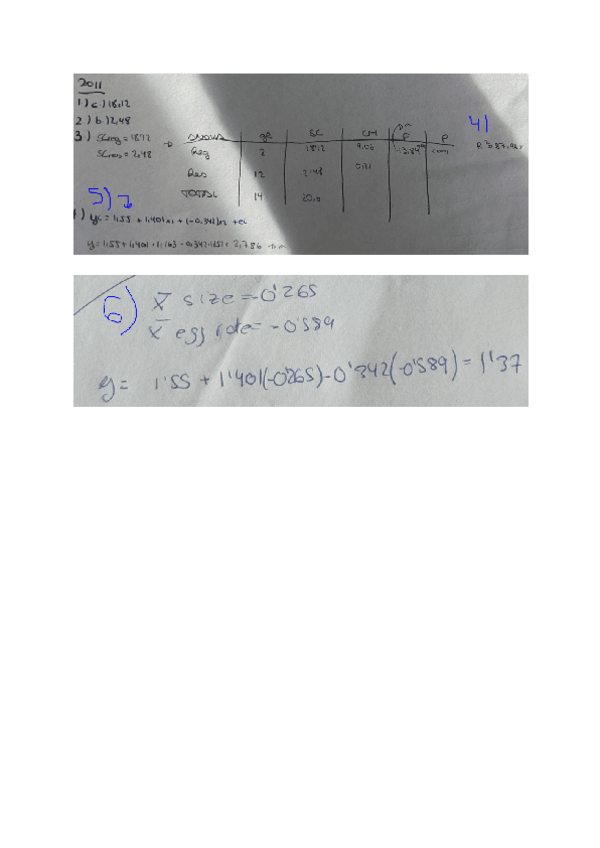 2011
1) c) 18,12
2) b) 2,48
3) SCreg = 18'12
SCres = 2,48
CAUSA gl SC CM F P
Reg 2 18'12 9,06
Res 12 2'48 0,21
TOTAL 14 20,6
4)
5)
y = 1,55 + 1,401 x1 + (-0,342)
y = 1,55 + 1,401 · 1,163 - 0,342 = 2,786
6) x̅ size = -0'265
x̅ egg rate = -0'589
y = 1'55 + 1'401(-0'265) - 0'342(-0'589) = 1'37